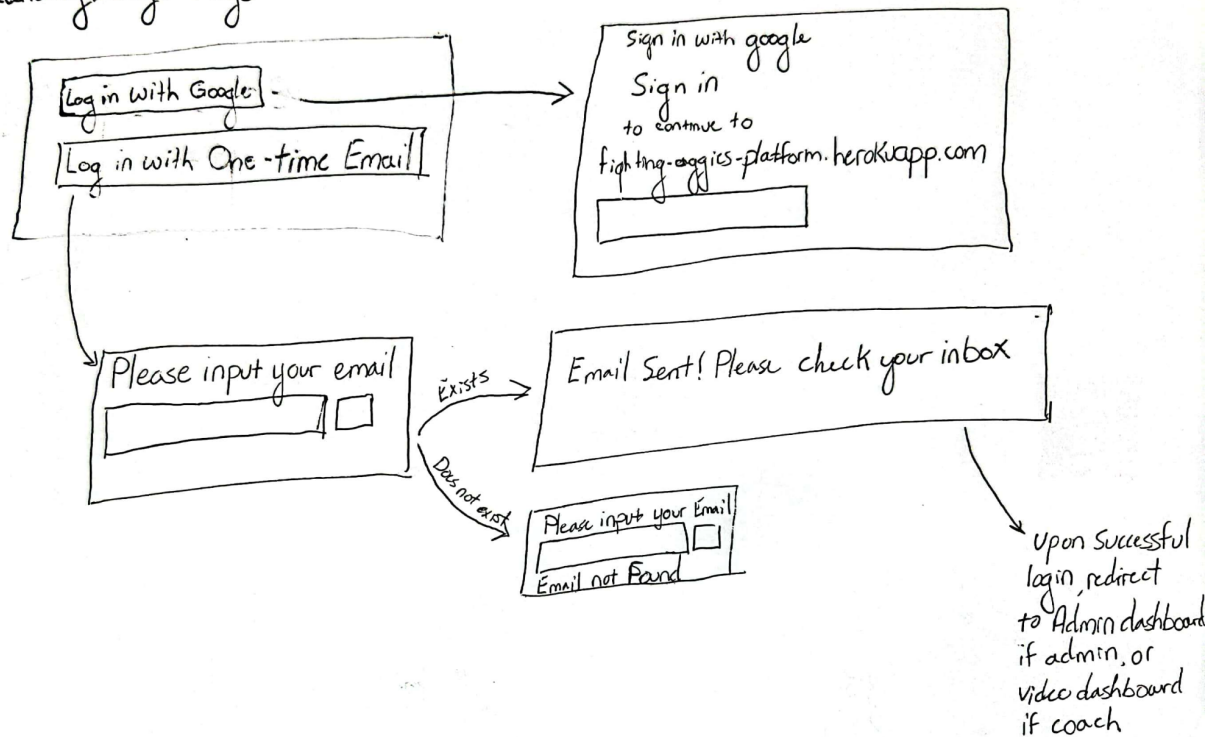 Log in with Google
Log in with One-time Email
Sign in with google
Sign in
to continue to
fighting-aggies-platform.herokuapp.com
Please input your email
Exists
Does not exist
Email Sent! Please check your inbox
Please input your Email
Email not Found
Upon Successful
login, redirect
to Admin dashboard
if admin, or
video dashboard
if coach